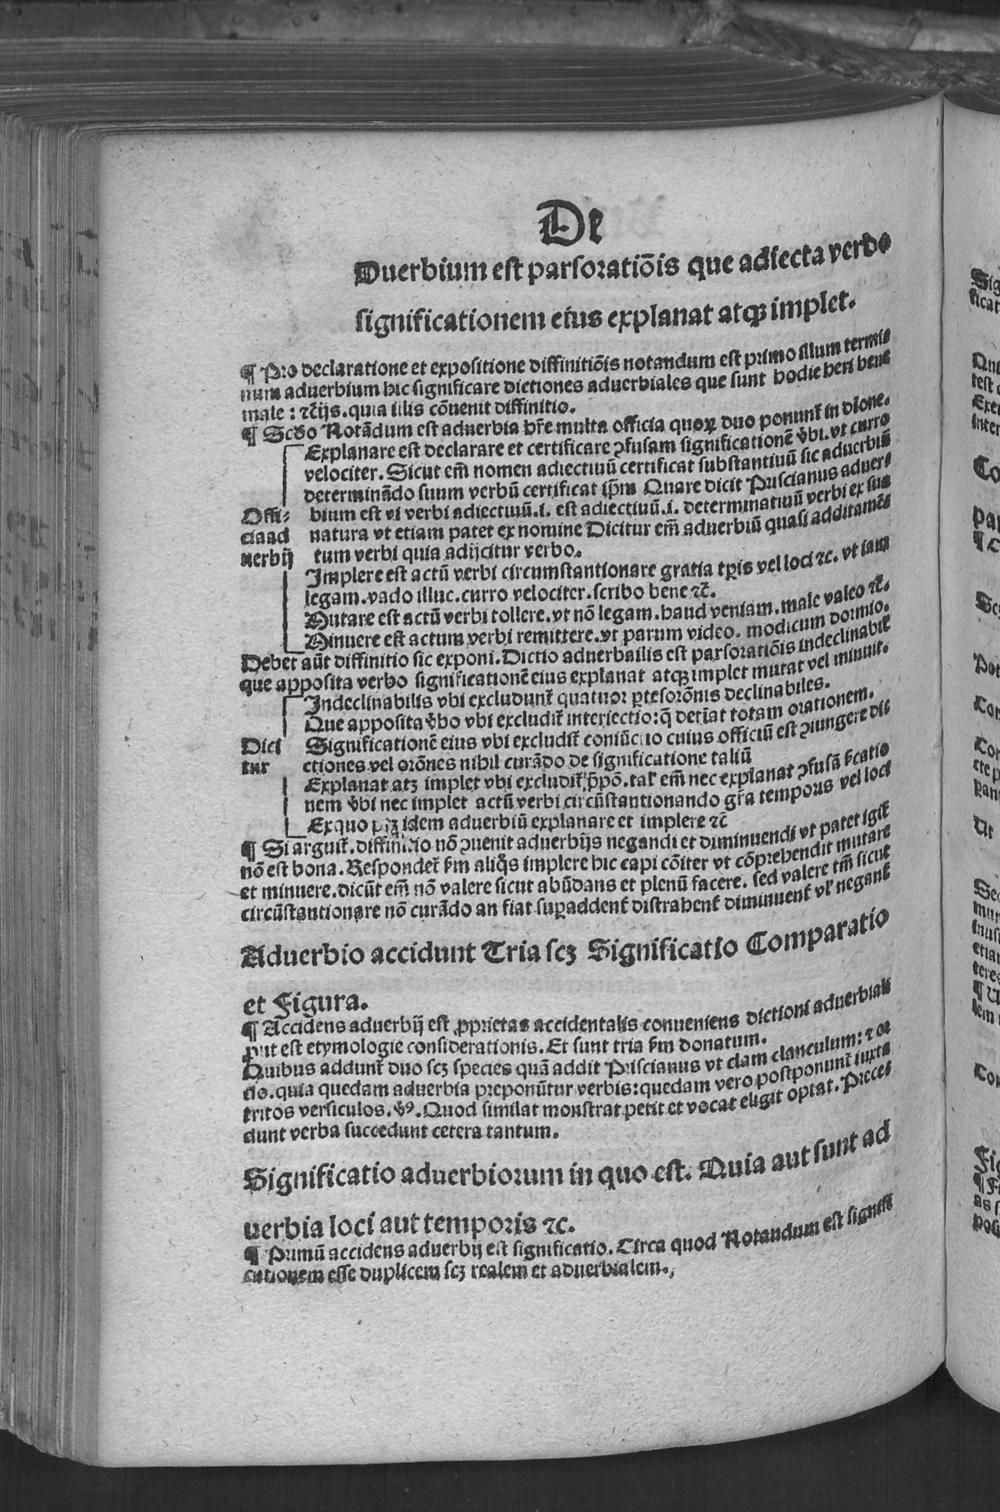 De
Duerbium est parsoratiōis que adiecta verbo
significationem eius explanat atqꝫ implet.
¶ Pro declaratione et expositione diffinitiōis notandum est primo illum termi⸗
num aduerbium hic significare dictiones aduerbiales que sunt hodie heri bene
male: ⁊c̄ijs. quia illis cōuenit diffinitio.
¶ Scd̄o Notādum est aduerbia hr̄e multa officia quoꝝ duo ponunt̄ in dione.
Explanare est declarare et certificare ꝯfusam significationē v̄bi. vt curro
velociter. Sicut em̄ nomen adiectiuū certificat substantiuū sic aduerbiū
determinādo suum verbū certificat ip̄m Quare dicit Priscianus aduer⸗
Offi⸗ bium est vi verbi adiectiuū.i. est adiectiuū.i. determinatiuū verbi ex sua
ciaad natura vt etiam patet ex nomine Dicitur em̄ aduerbiū quasi additamē⸗
uerbij tum verbi quia adijcitur verbo.
Implere est actū verbi circumstantionare gratia tp̄is vel loci ⁊c. vt iam
legam. vado illuc. curro velociter. scribo bene ⁊c̄.
Mutare est actū verbi tollere. vt nō legam. haud veniam. male valeo ⁊c̄.
Minuere est actum verbi remittere. vt parum video. modicum dormio.
Debet aūt diffinitio sic exponi. Dictio aduerbailis est parsoratiōis indeclinabił
que apposita verbo significationē eius explanat atqꝫ implet mutat vel minuit.
Indeclinabilis vbi excludunt̄ quatuor ꝑtesorōnis declinabiles.
Que apposita v̄bo vbi excludit̄ interiectio: q̄ det̄iat totam orationem.
Dici Significationē eius vbi excludit̄ coniūctio cuius officiū est ꝯiungere di⸗
tur ctiones vel orōnes nihil curādo de significatione taliū
Explanat atꝫ implet vbi excludit̄ p̄pō. tał em̄ nec explanat ꝯfusā sc̄atio
nem v̄bi nec implet actū verbi circūstantionando gr̄a temporis vel loci
Ex quo ptꝫ idem aduerbiū explanare et implere ⁊c̄
¶ Si arguit̄. diffinitio nō ꝯuenit aduerbijs negandi et diminuendi vt patet igit̄
nō est bona. Respondet̄ ſm aliq̄s implere hic capi cōiter vt cōprehendit mutare
et minuere. dicūt em̄ nō valere sicut abūdans et plenū facere. sed valere tm̄ sicut
circūstantionare nō curādo an fiat suꝑaddent̄ distrahent̄ diminuent̄ vł negant̄
Aduerbio accidunt Tria scꝫ Significatio Comparatio
et Figura.
¶ Accidens aduerbij est ꝓprietas accidentalis conueniens dictioni aduerbiali
ꝓut est etymologie considerationis. Et sunt tria ſm donatum.
Quibus addunt̄ duo scꝫ species quā addit Priscianus vt clam clanculum: ⁊ or
do. quia quedam aduerbia preponūtur verbis: quedam vero postponunt̄ iuxta
tritos versiculos. v̄9. Quod similat monstrat petit et vocat eligit optat. Prece⸗
dunt verba succedunt cetera tantum.
Significatio aduerbiorum in quo est. Quia aut sunt ad
uerbia loci aut temporis ⁊c.
¶ Primū accidens aduerbij est significatio. Circa quod Notandum est signifi
cationem esse duplicem scꝫ realem et aduerbialem.